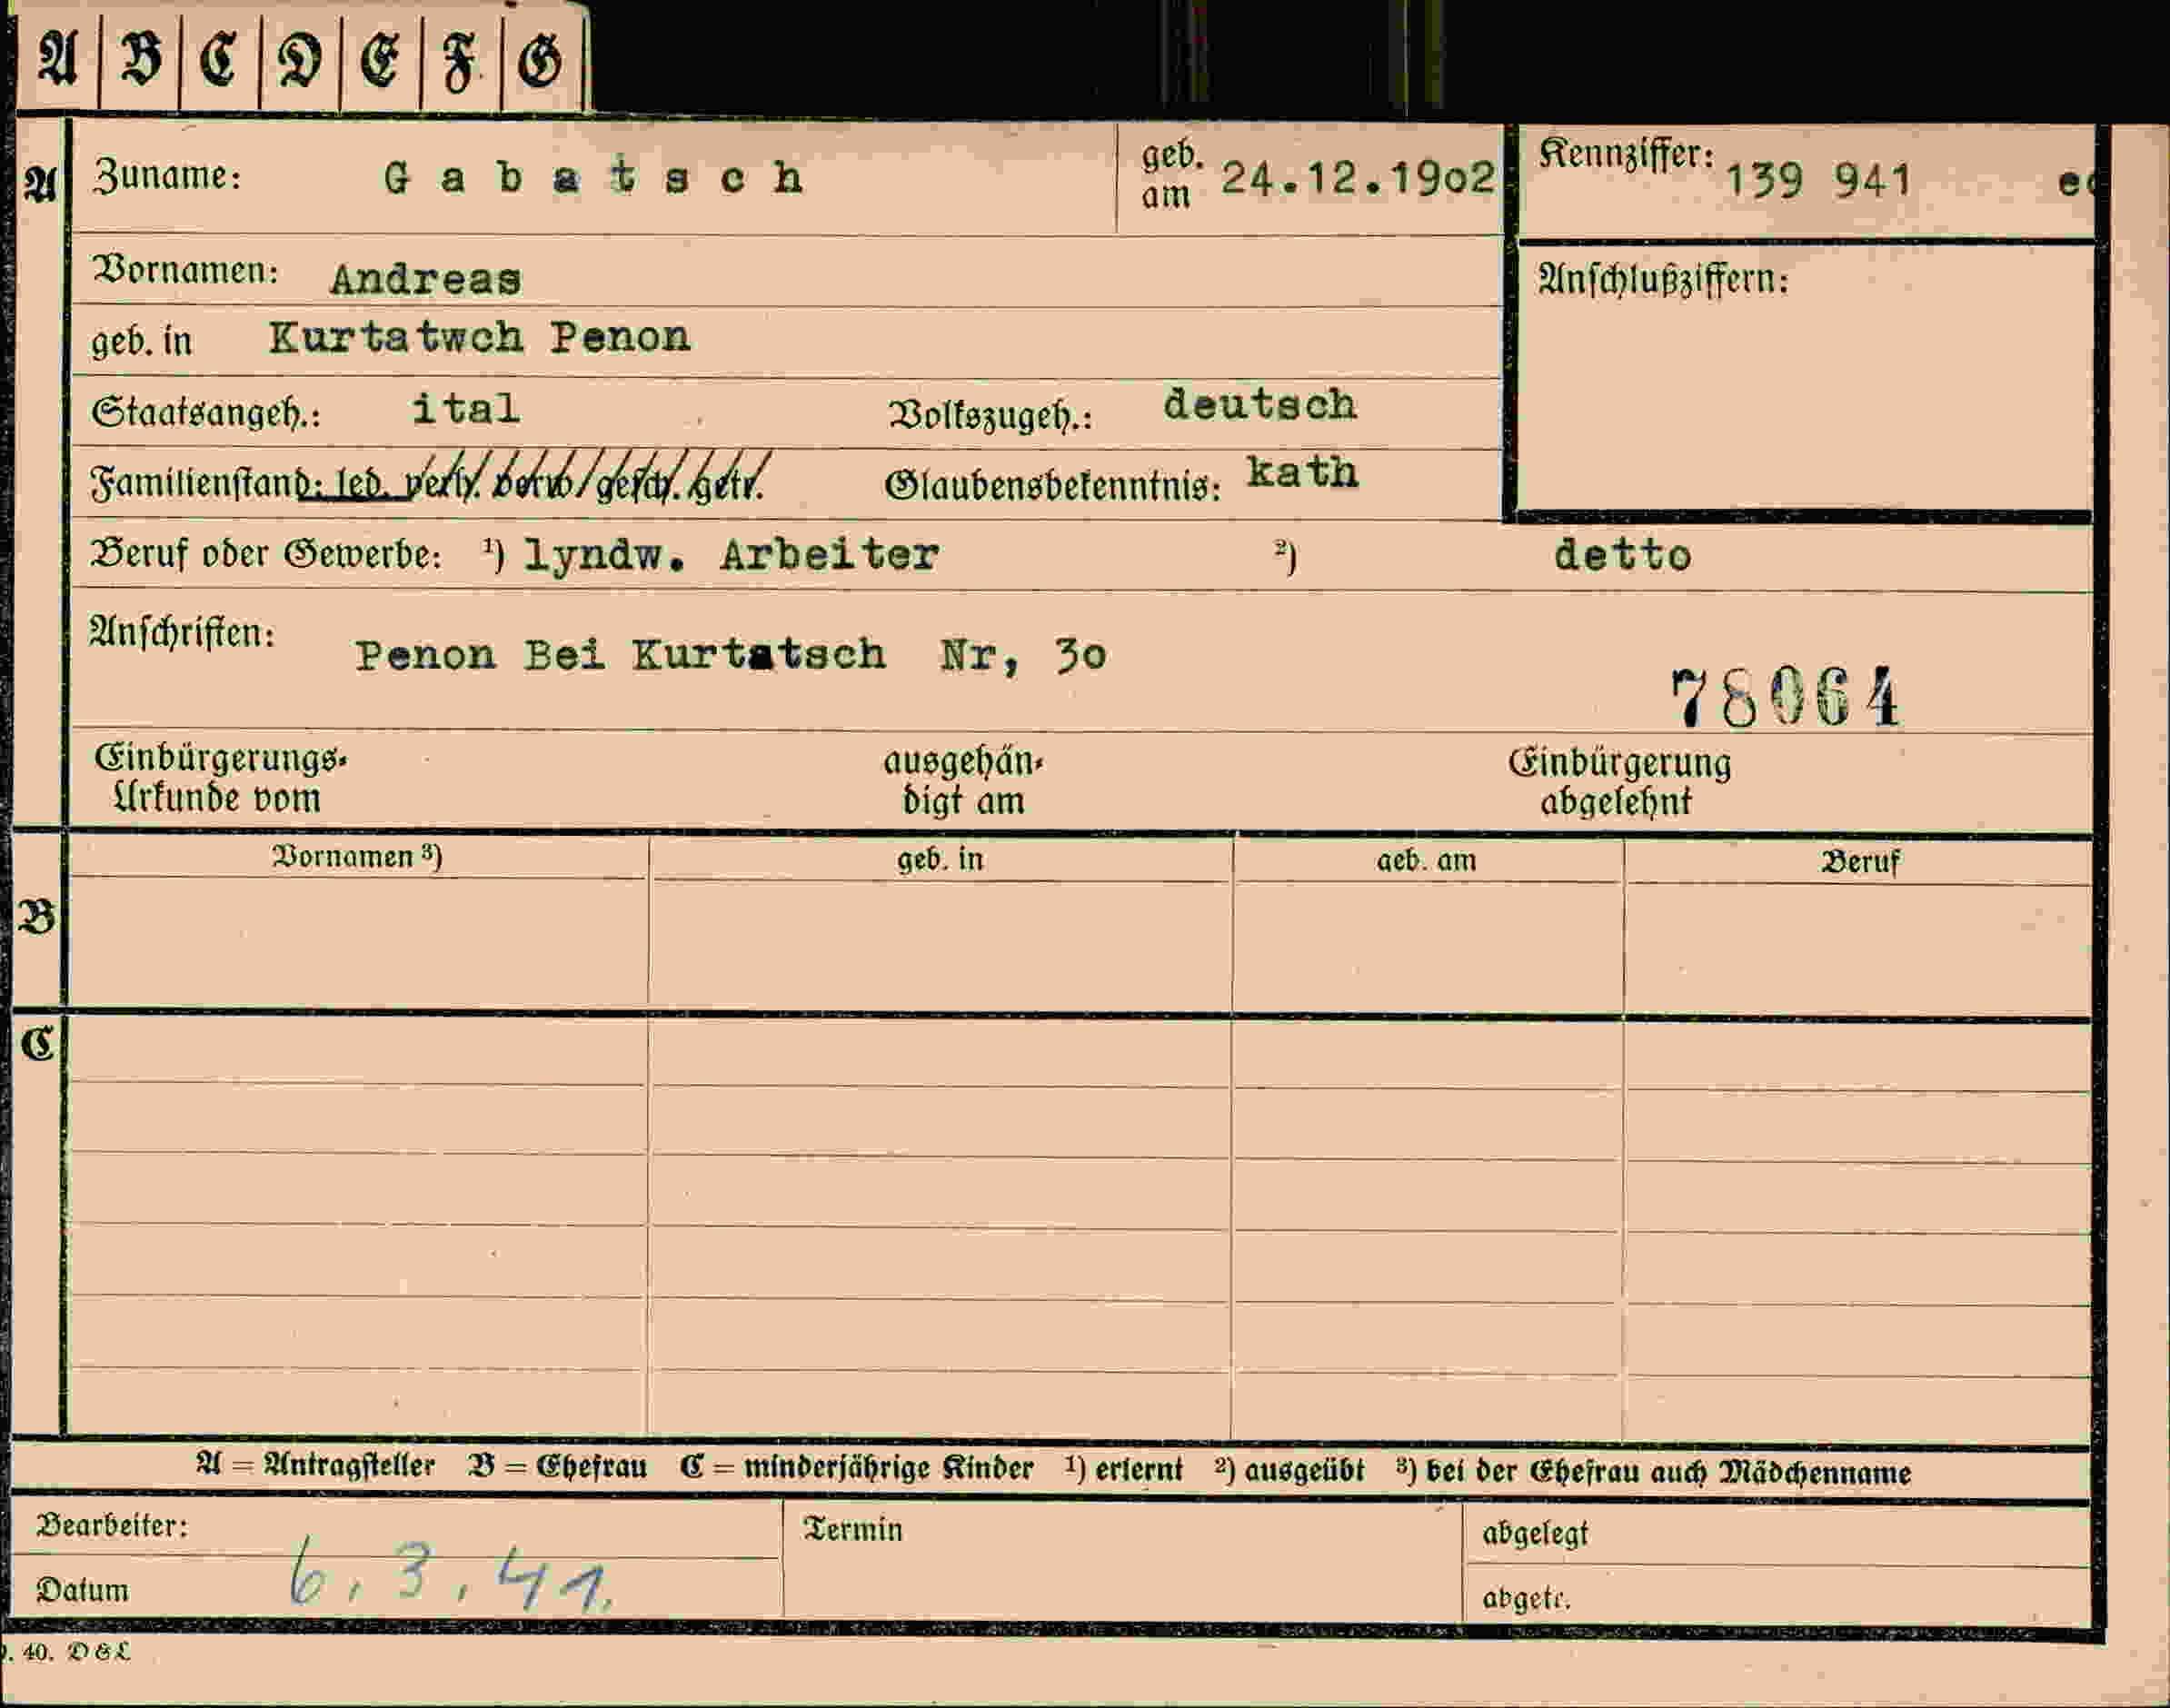 A B C D E F G
A Zuname: Gabatsch geb. am 24.12.19o2 Kennziffer: 139 941
Vornamen: Andreas Anschlußziffern:
geb. in Kurtatwch Penon
Staatsangeh.: ital Volkszugeh.: deutsch
Familienstand: led. verh. verw. gesch. getr. Glaubensbekenntnis: kath
Beruf oder Gewerbe: ¹) lyndw. Arbeiter ²) detto
Anschriften: Penon Bei Kurtatsch Nr, 3o
78064
Einbürgerungs- ausgehän- Einbürgerung
Urkunde vom digt am abgelehnt
Vornamen ³) geb. in geb. am Beruf
B
C
A = Antragsteller B = Ehefrau C = minderjährige Kinder ¹) erlernt ²) ausgeübt ³) bei der Ehefrau auch Mädchenname
Bearbeiter: Termin abgelegt
Datum 6.3.41. abgetr.
. 40. D & L